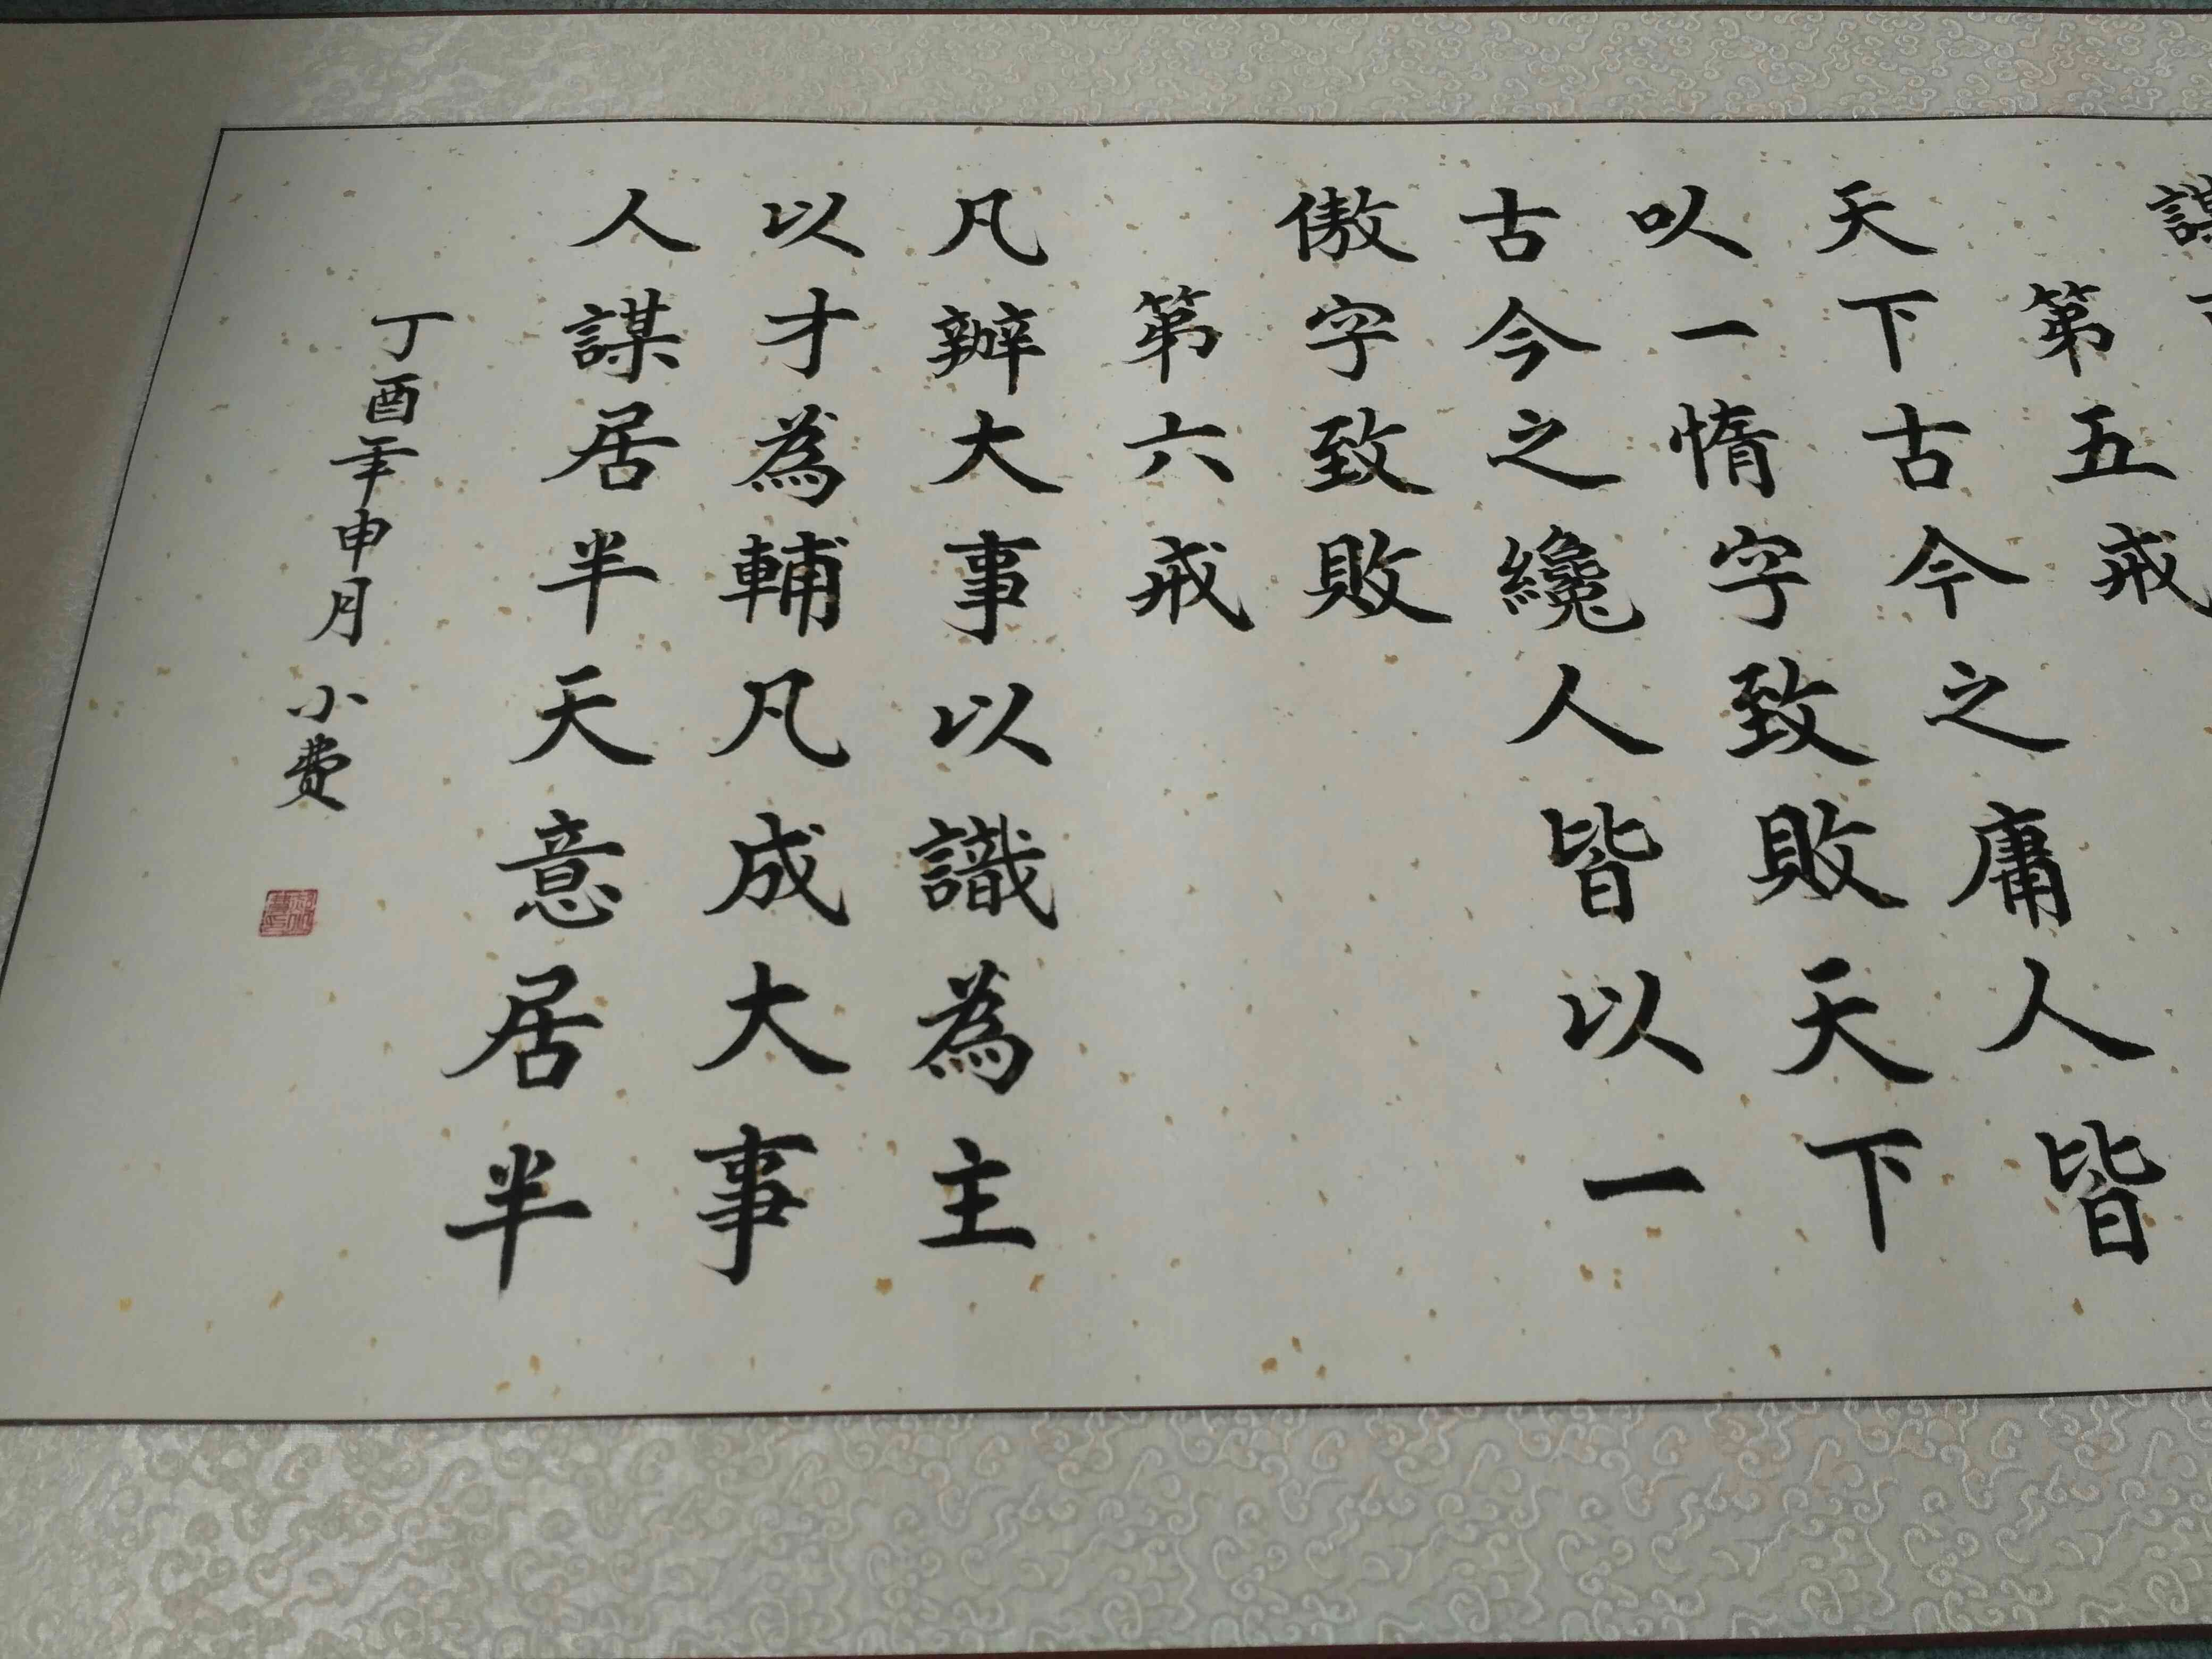 謀
第五戒
天下古今之庸人皆
以一惰字致敗天下
古今之纔人皆以一
傲字致敗
第六戒
凡辦大事以識為主
以才為輔凡成大事
人謀居半天意居半
丁酉年申月小費